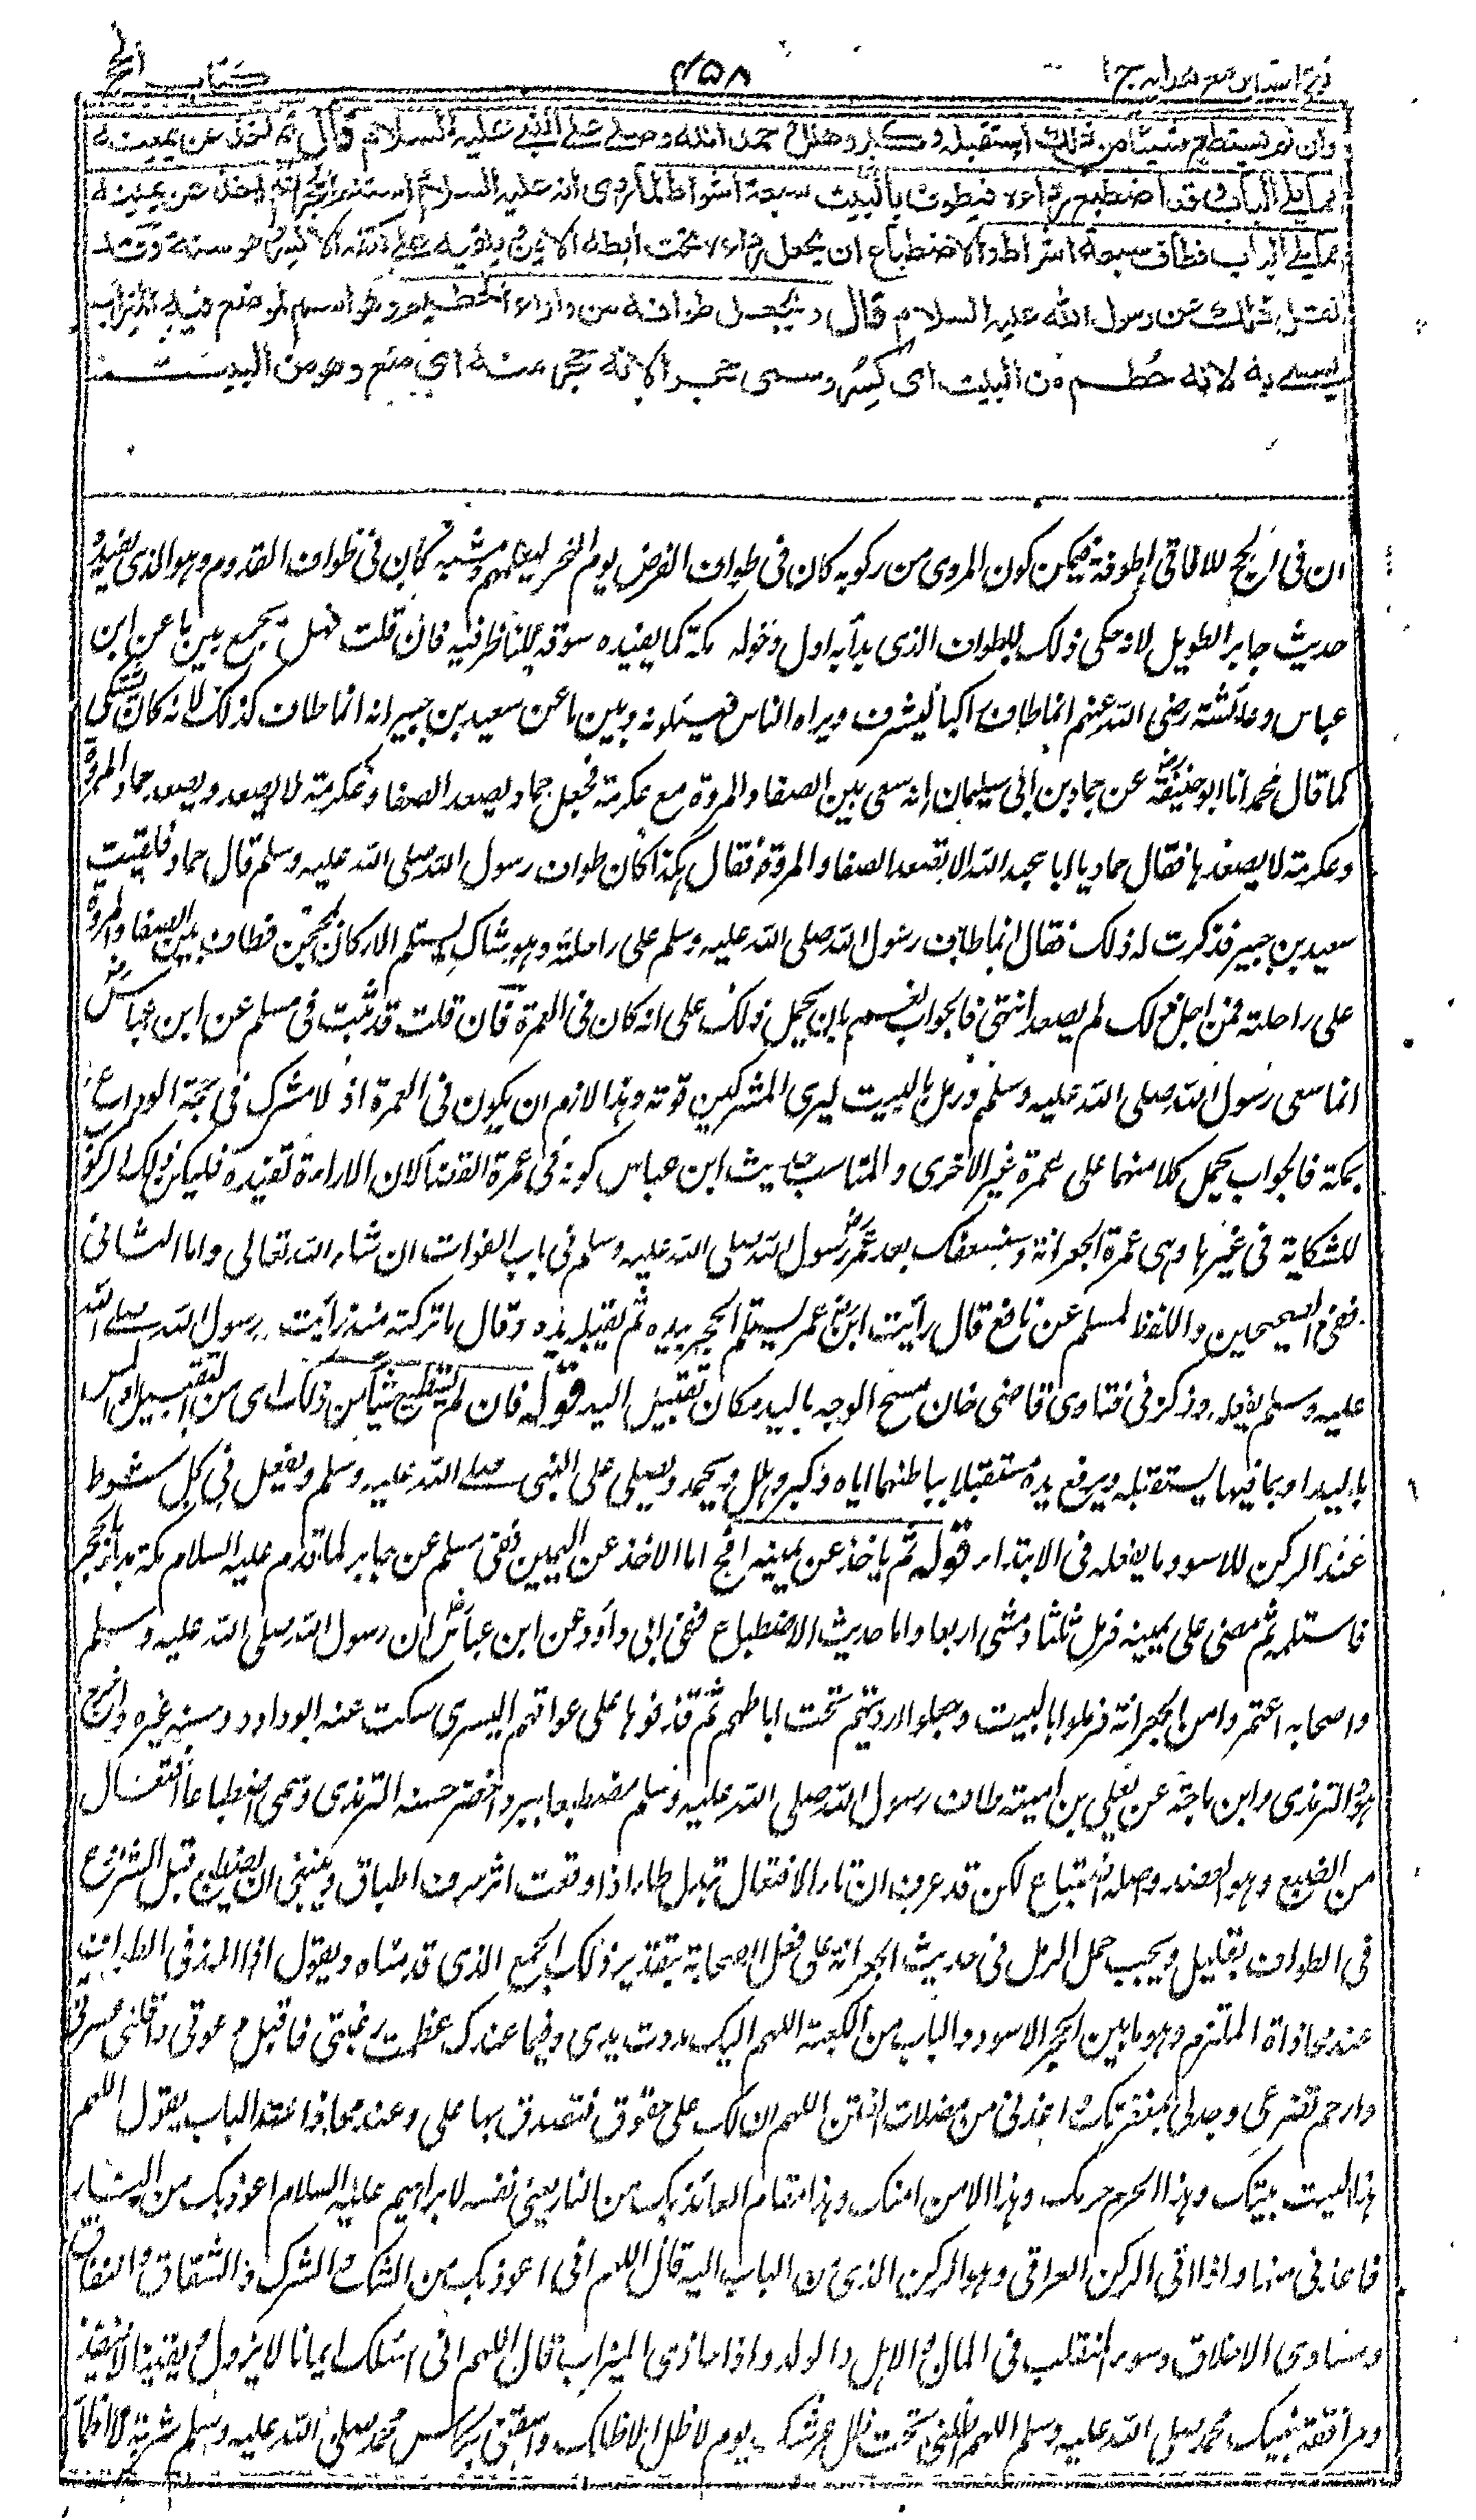 فتح القدير مع هدايه ج ا ۳۵۸ كتاب الحج
وان لم يستطع شيئا من ذلك استقبله وكبر وهلل وحمد الله وصلى على النبي عليه السلام قال ثم اخذ عن يمينه
مما يلي الباب وقد اضطبع رداءه فيطوف بالبيت سبعة اشواط لما روى انه عليه السلام استلم الحجر ثم اخذ عن يمينه
مما يلي الباب فطاف سبعة اشواط والاضطباع ان يجعل رداءه تحت ابطه الايمن ويلقيه على كتفه الايسر وهو سنة وقد
نقل ذلك عن رسول الله عليه السلام قال ويجعل طوافه من وراء الحطيم وهو اسم لموضع فيه الميزاب
يسمى به لانه حطم من البيت اى كسر وسمى حجرا لانه حجر منه اى منع وهو من البيت
ان فى الحج للآفاقى اطوفة فيمكن كون المروى من ركوبه كان فى طواف الفرض يوم النحر ليعلمهم ومشيه كان فى طواف القدوم وهو الذى يفيده
حديث جابر الطويل لانه حكى ذلك الطواف الذى بدأ به اول دخوله مكة كما يفيده سوقه للناظر فيه فان قلت فهل يجمع بين ما عن ابن
عباس وعائشة رضى الله عنهم انما طاف راكبا ليشرف ويراه الناس فيسئلونه وبين ما عن سعيد بن جبير انه انما طاف كذلك لانه كان يشتكى
كما قال محمد انا ابو حنيفة رض عن حماد بن ابى سليمان انه سعى بين الصفا والمروة مع عكرمة فجعل حماد يصعد الصفا وعكرمة لا يصعد ويصعد حماد المروة
وعكرمة لا يصعدها فقال حماد يا ابا عبد الله الا تصعد الصفا والمروة فقال هكذا كان طواف رسول الله صلى الله عليه وسلم قال حماد فلقيت
سعيد بن جبير فذكرت له ذلك فقال انما طاف رسول الله صلى الله عليه وسلم على راحلته وهو شاك يستلم الاركان بمحجن فطاف بين الصفا والمروة
على راحلته فمن اجل ذلك لم يصعد انتهى فالجواب نعم بان يحمل ذلك على انه كان فى العمرة فان قلت قد ثبت فى مسلم عن ابن عباس رض
انما سعى رسول الله صلى الله عليه وسلم ورمل بالبيت ليرى المشركين قوته وهذا لازم ان يكون فى العمرة اذ لا مشرك فى حجة الوداع
بمكة فالجواب يحمل كلا منهما على عمرة غير الاخرى والمناسب حديث ابن عباس كونه فى عمرة القضاء لان الاراءة تفيده فليكن ذلك الركوب
للشكاية فى غيرها وهى عمرة الجعرانة وسنسعفك بعد عمر رسول الله صلى الله عليه وسلم فى باب الفوات ان شاء الله تعالى واما الثانى
ففى الصحيحين واللفظ لمسلم عن نافع قال رأيت ابن عمر يستلم الحجر بيده ثم يقبل يده وقال ما تركته منذ رأيت رسول الله صلى الله
عليه وسلم يفعله وذكر فى فتاوى قاضى خان مسح الوجه باليد مكان تقبيل اليد قوله فان لم يستطع شيئا من ذلك اى من التقبيل او المس
باليد او بما فيها يستقبله ويرفع يديه مستقبلا بباطنهما اياه وكبر وهلل ويحمد ويصلى على النبى صلى الله عليه وسلم ويفعل فى كل شوط
عند الركن الاسود ما يفعله فى الابتداء قوله ثم يأخذ عن يمينه الخ اما الاخذ عن اليمين ففى مسلم عن جابر لما قدم عليه السلام مكة بدأ بالحجر
فاستلمه ثم مضى على يمينه فرمل ثلثا ومشى اربعا واما حديث الاضطباع ففى ابى داؤد عن ابن عباس رض ان رسول الله صلى الله عليه وسلم
واصحابه اعتمروا من الجعرانة فرملوا بالبيت وجعلوا ارديتهم تحت اباطهم ثم قذفوها على عواتقهم اليسرى سكت عنه ابو داود وحسنه غيره واخرج
هو والترمذى وابن ماجة عن يعلى بن امية طاف رسول الله صلى الله عليه وسلم مضطبعا ببرد اخضر حسنه الترمذى وسمى اضطباعا افتعال
من الضبع وهو العضد واصله اضتباع لكن قد عرف ان تاء الافتعال تبدل طاء اذا وقعت اثر حرف اطباق وينبغى ان يضطبع قبل الشروع
فى الطواف بقليل ويجب حمل الرمل فى حديث الجعرانة على فعل الصحابة بتقدير ذلك الجمع الذى قدمناه ويقول اذا اخذ فى الطواف
عند محاذاة الملتزم وهو ما بين الحجر الاسود والباب من الكعبة اللهم اليك مددت يدى وفيما عندك عظمت رغبتى فاقبل دعوتى واقلنى عثرتى
وارحم تضرعى وجد لى بمغفرتك واعذنى من مضلات الفتن اللهم ان لك على حقوقا فتصدق بها على وعند محاذاة الباب يقول اللهم
هذا البيت بيتك وهذا الحرم حرمك وهذا الامن امنك وهذا مقام العائذ بك من النار يعنى نفسه لا ابراهيم عليه السلام اعوذ بك من النار
فاعذنى منها واذا اتى الركن العراقى وهو الركن الذى من الباب اليه قال اللهم انى اعوذ بك من الشك والشرك والشقاق والنفاق
ومساوى الاخلاق وسوء المنقلب فى المال والاهل والولد واذا حاذى الميزاب قال اللهم انى اسئلك ايمانا لا يزول ويقينا لا ينفد
ومرافقة نبيك محمد صلى الله عليه وسلم اللهم اظلنى تحت ظل عرشك يوم لا ظل الا ظلك واسقنى بكاس محمد صلى الله عليه وسلم شربة لا اظمأ